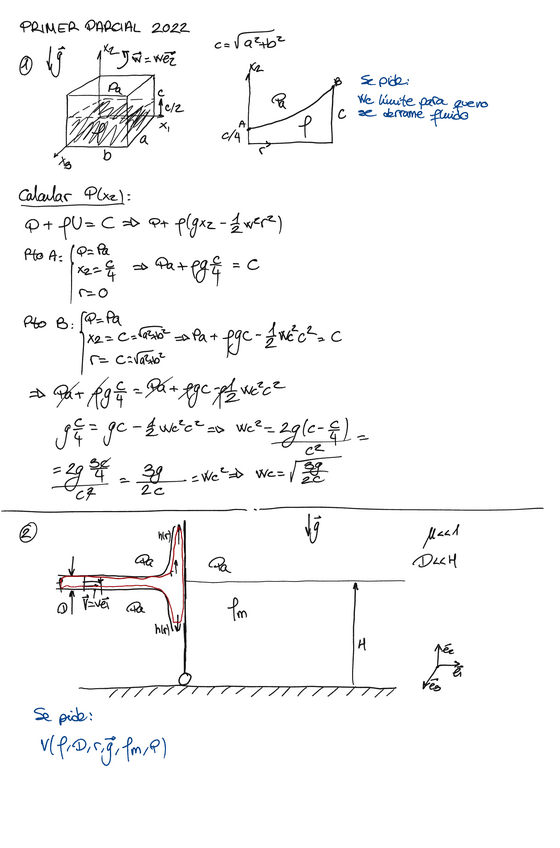 PRIMER PARCIAL 2022
① ↓g⃗ x₂ w⃗=we⃗₂ c=√a²+b²
Pa c c/2 x₁ x₃ b a ρ
x₂ A B Pa ρ c c/4 r
Se pide:
wc límite para que no
se derrame fluido
Calcular P(x₂):
P + ρU = C ⇒ P+ ρ(gx₂ - 1/2 w²r²)
Pto A: { P=Pa
x₂= c/4 ⇒ Pa + ρg c/4 = C
r=0
Pto B: { P=Pa
x₂= C =√a²+b² ⇒ Pa + ρgc - 1/2 wc²c² = C
r= C=√a²+b²
⇒ Pa + ρg c/4 = Pa + ρgc - ρ 1/2 wc²c²
g c/4 = gc - 1/2 wc²c² ⇒ wc² = 2g(c - c/4) / c² =
= 2g 3c/4 / c² = 3g / 2c = wc² ⇒ wc = √3g/2c
② ↓g⃗ μ<<1
D<<H
h(r) Pa Pa
D v⃗=ve⃗₁ Pa ρm
h(r) H
e⃗₂ e⃗₁ e⃗₃
Se pide:
V(ρ,D,r,g⃗,ρm,P)